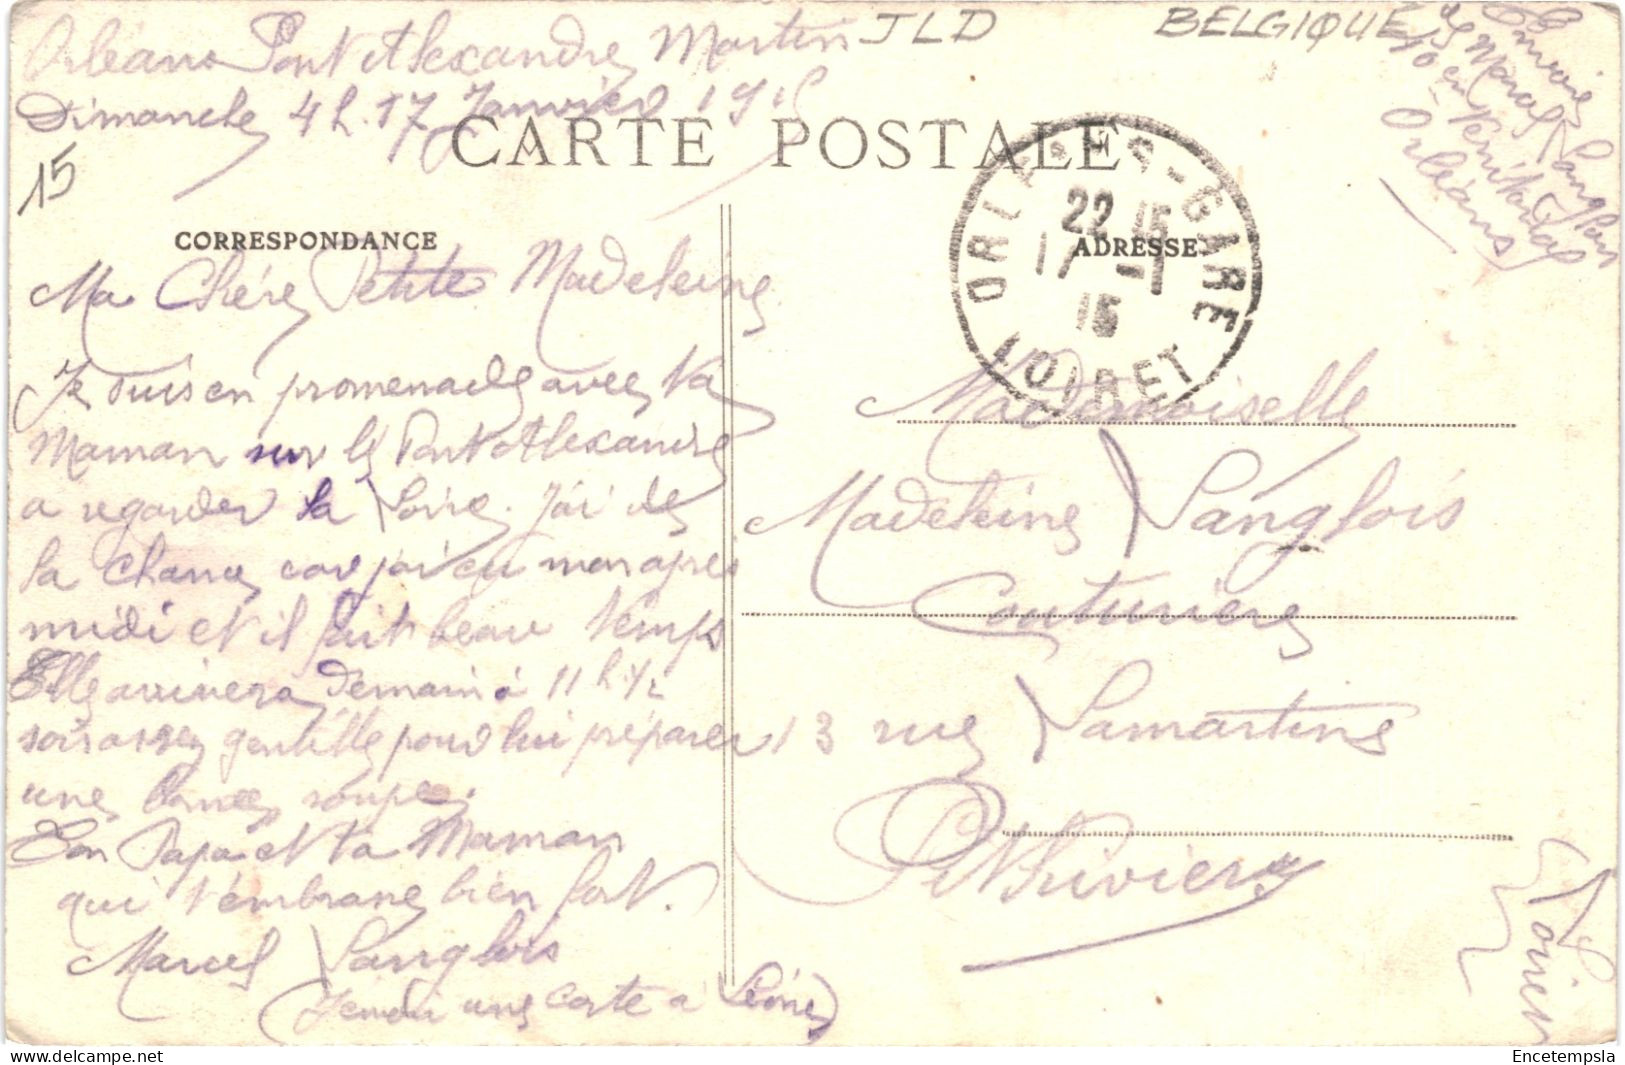 Orléans Pont Alexandre Martin JLD BELGIQUE
Dimanche 4 h. 17 Janvier 1915
Envoie
de Marcel Langlois
Orléans
15
CARTE POSTALE
CORRESPONDANCE
ADRESSE
ORLEANS-GARE
22 15
17 -1
15
LOIRET
Ma Chére Petite Madeleine
Je suis en promenade avec ta
Maman sur le Pont Alexandre
a regarder la Loire. J'ai de
la chance car j'ai eu mon apres
midi et il fait beau temps
Elle arrivera demain à 11 h. 1/2
soir assez gentille pour lui préparer
une bonne soupe.
Ton Papa et ta Maman
qui t'embrasse bien fort.
Marcel Langlois
(J'envoi une carte a Léone)
Mademoiselle
Madeleine Langlois
Couturiere
13 rue Lamartine
Pithiviers
Loiret
Encetempsla